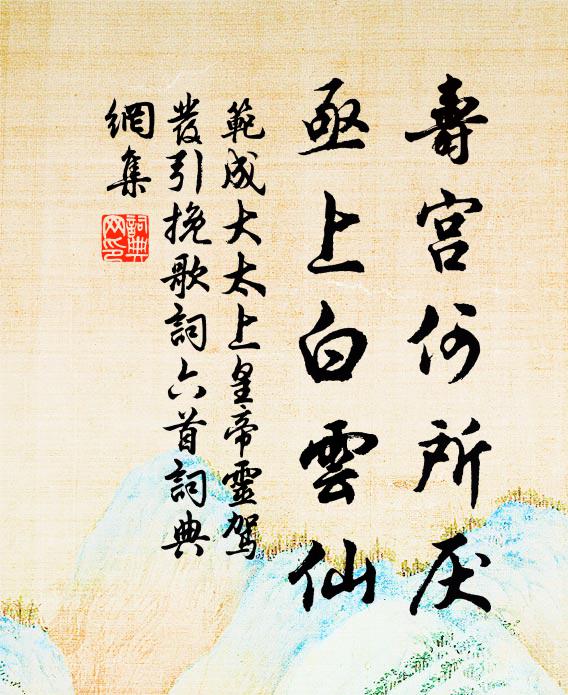 壽宮何所厌
亟上白雲仙
範成大太上皇帝靈駕
發引挽歌詞六首詞典
網集
詞典
网印